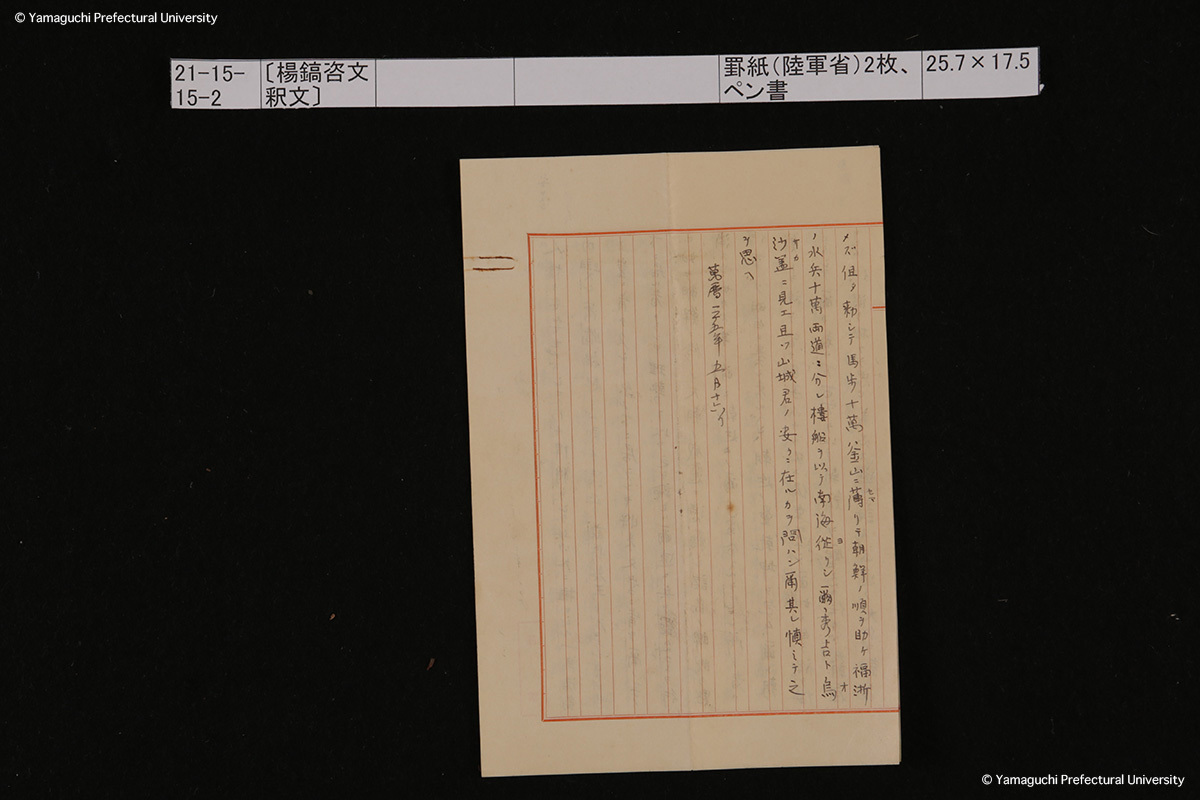 © Yamaguchi Prefectural University
21-15-15-2
〔楊鎬咨文釈文〕
罫紙(陸軍省)2枚、ペン書
25.7×17.5
メズ但タ勅シテ馬歩十萬釜山ニ薄リテ朝鮮ノ順ヲ助ケ福浙
セマ
ノ水兵十萬両道ニ分レ楼船ヲ以テ南海従リシ爾ノ秀吉ト烏
ヨ
オ
沙蓋ニ見エ且ツ山城君ノ安クニ在ルカヲ問ハン爾其レ慎ミテ之
ケカ
ヲ思ヘ
萬暦二十五年五月十
© Yamaguchi Prefectural University